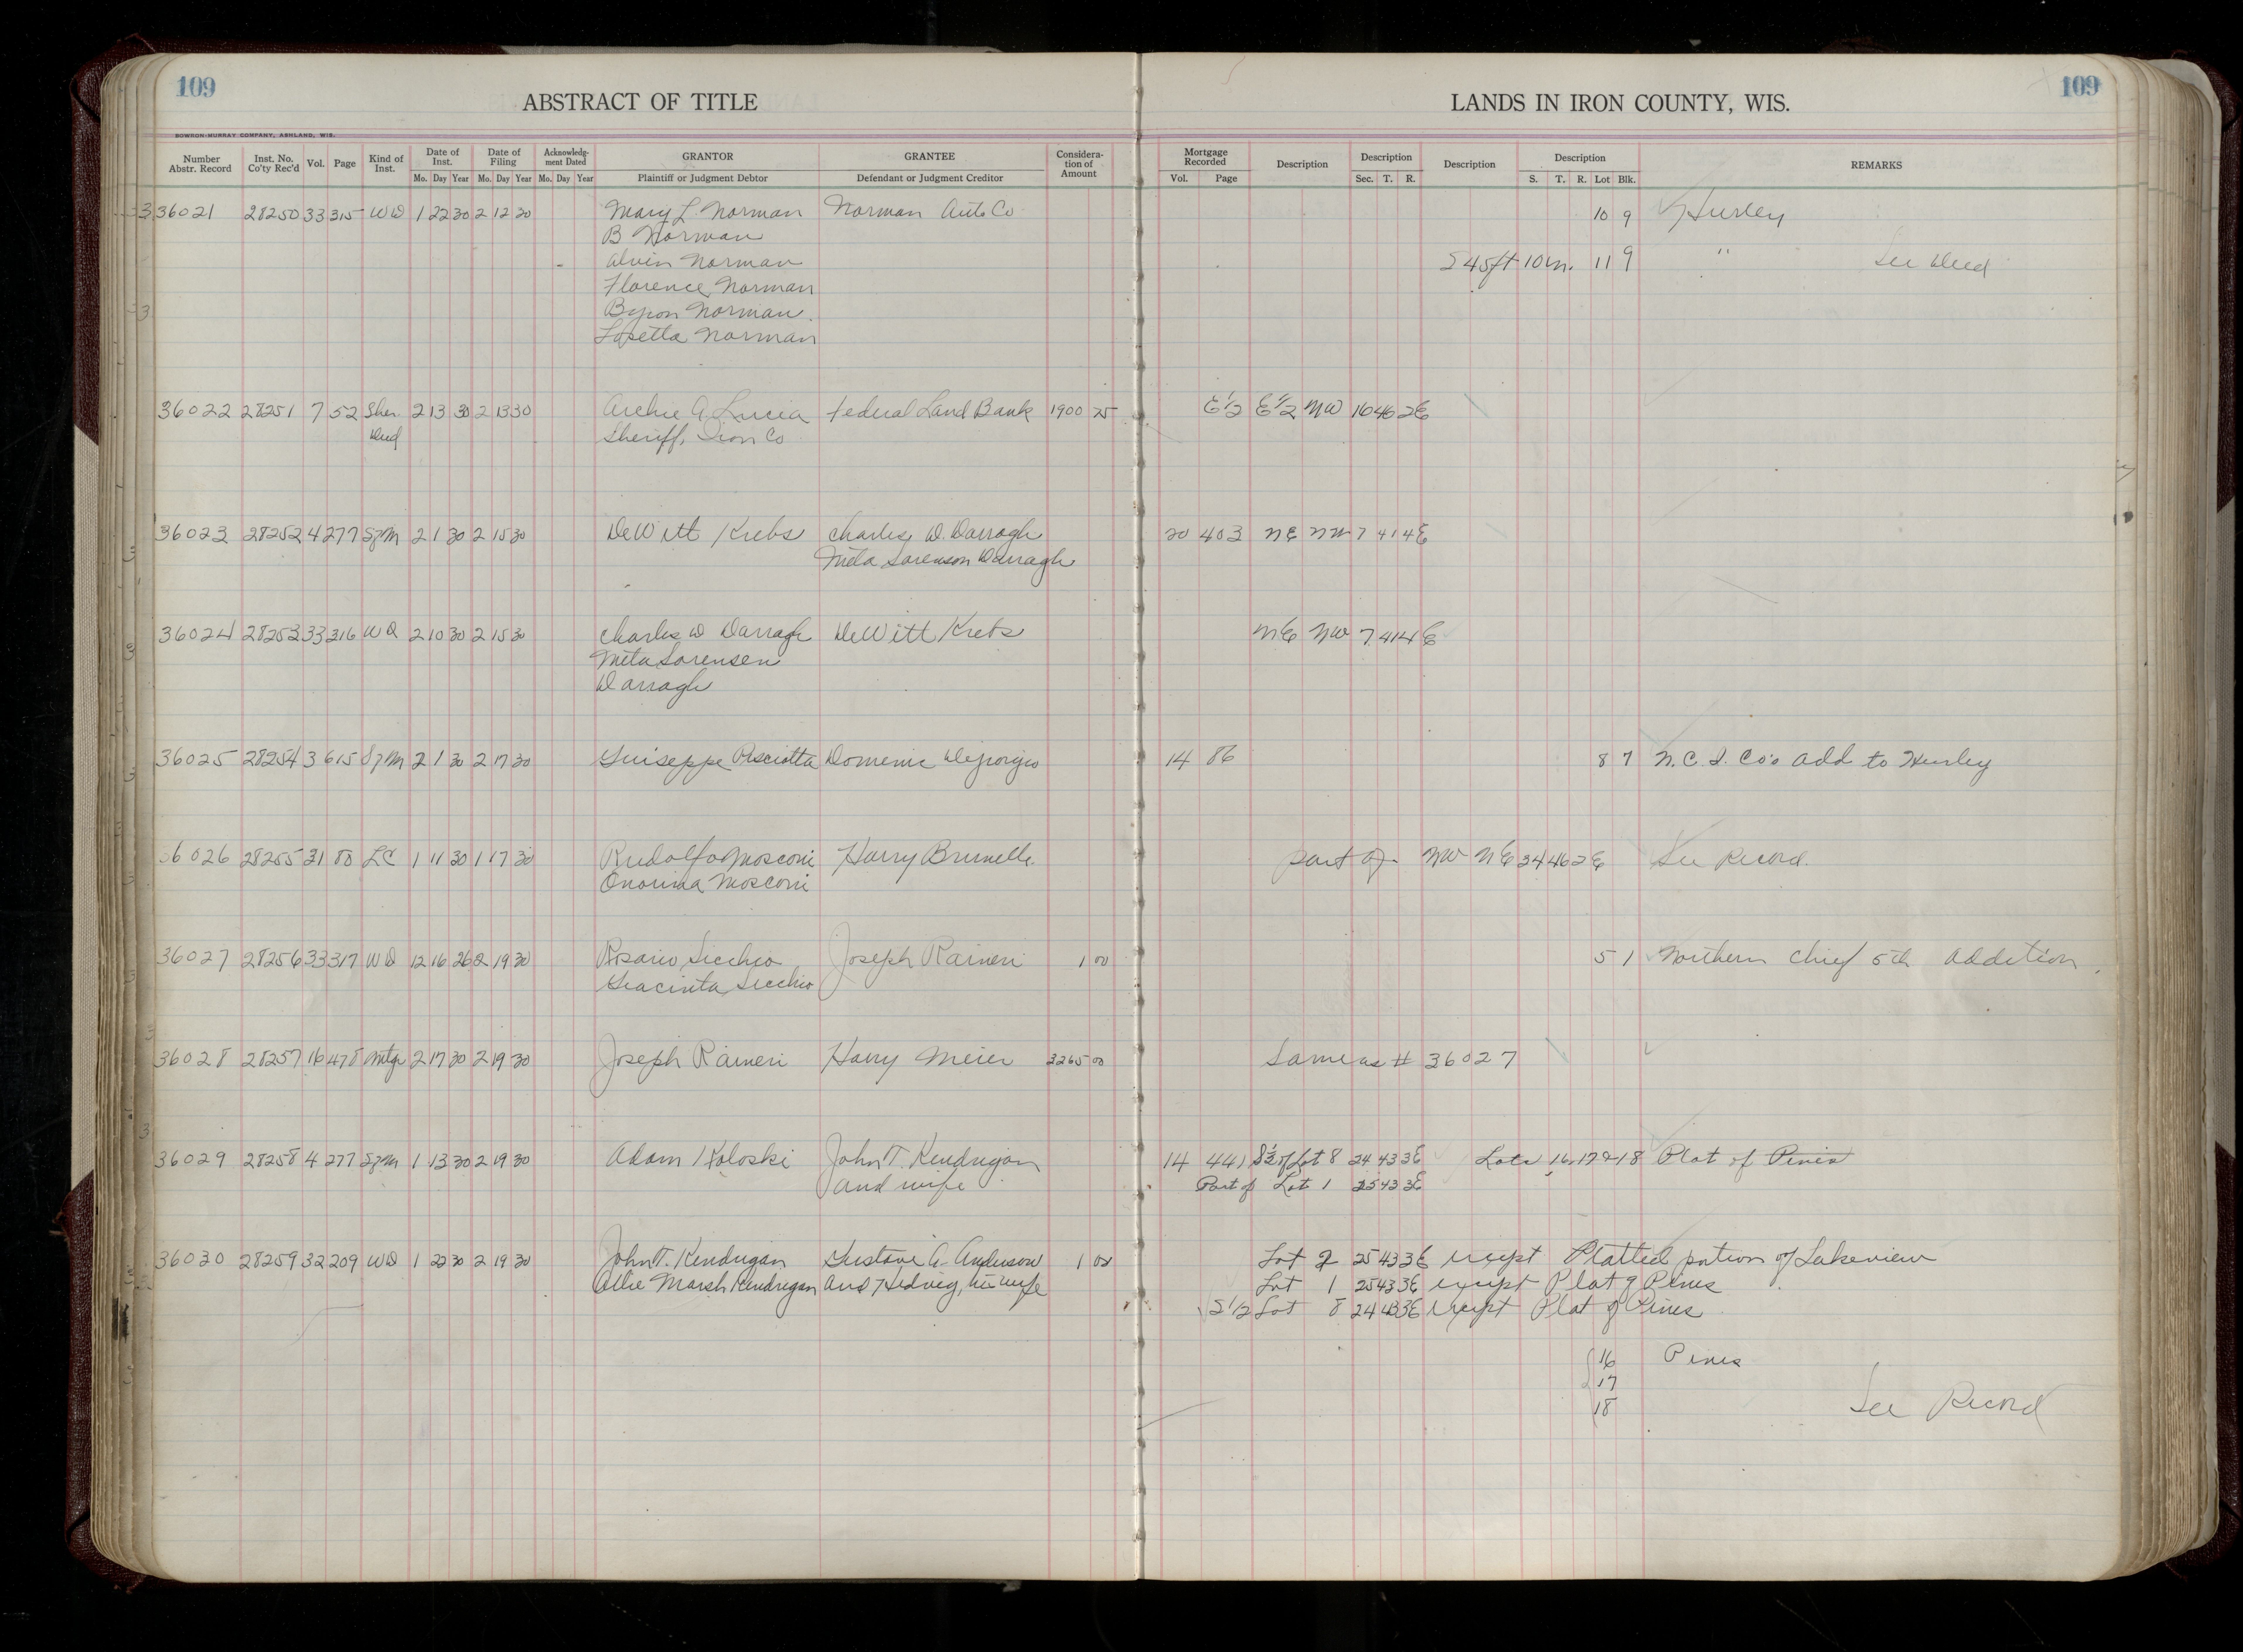 109
109
ABSTRACT OF TITLE
LANDS IN IRON COUNTY, WIS.
BOWRON-MURRAY COMPANY, ASHLAND, WIS.
Number Abstr. Record Inst. No. Co'ty Rec'd Vol. Page Kind of Inst. Date of Inst. Mo. Day Year Date of Filing Mo. Day Year Acknowledg-ment Dated Mo. Day Year GRANTOR Plaintiff or Judgment Debtor GRANTEE Defendant or Judgment Creditor Considera-tion of Amount Mortgage Recorded Vol. Page Description Description Sec. T. R. Description Description S. T. R. Lot Blk. REMARKS
36021 28250 33 315 WD 1 22 30 2 12 30 Mary L. Norman Norman Auto Co 10 9 Hurley
B Norman
Alvin Norman S 45 ft 10 in. 11 9 " See Deed
Florence Norman
Byron Norman
Loretta Norman
36022 28251 7 52 Sher. 2 13 30 2 13 30 Archie A. Lucia Federal Land Bank 1900 25 E 1/2 E 1/2 NW 16 46 2E
Deed Sheriff, Iron Co
36023 28252 4 277 SM 2 1 30 2 15 30 DeWitt Krebs Charles D. Darragh 20 403 NE NW 7 41 4E
Meta Sorenson Darragh
36024 28253 33 316 WD 2 10 30 2 15 30 Charles D Darragh DeWitt Krebs NE NW 7 41 4E
Meta Sorensen
Darragh
36025 28254 3 615 SM 2 1 30 2 17 30 Guiseppe Pisciotta Domenic Degiorgio 14 86 8 7 N.C.I. Co's Add to Hurley
36026 28255 31 80 LC 1 11 30 1 17 30 Rudolfo Mosconi Harry Brunelle part of NW NE 34 46 2E See Record.
Onorina Mosconi
36027 28256 33 317 WD 12 16 26 2 19 30 Rosario Sicchio Joseph Raineri 1 00 5 1 Northern Chief 5th Addition
Giacinta Sicchio
36028 28257 16 478 Mtge 2 17 30 2 19 30 Joseph Raineri Harry Meier 3265 00 Same as # 36027
36029 28258 4 277 SM 1 13 30 2 19 30 Adam Koloski John T. Kendrigan 14 441 S 1/2 of Lot 8 24 43 3E Lots 16, 17 & 18 Plat of Pines
and wife Part of Lot 1 25 43 3E
36030 28259 32 209 WD 1 22 30 2 19 30 John T. Kendrigan Gustave A. Anderson 1 00 Lot 2 25 43 3E except Platted portion of Lakeview
Ollie Marsh Kendrigan and Hedvig, his wife Lot 1 25 43 3E except Plat of Pines
S 1/2 Lot 8 24 43 3E except Plat of Pines
16 Pines
17
18 See Record